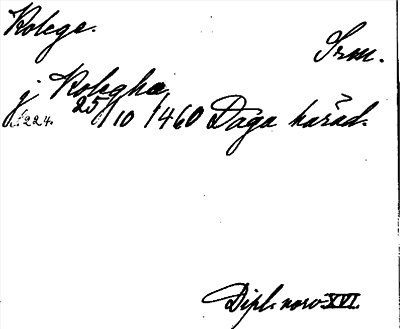 Kolege.
Srm.
j Koleghæ
25/10 1460 Daga härad.
s. 224.
Dipl. norv. XVI.